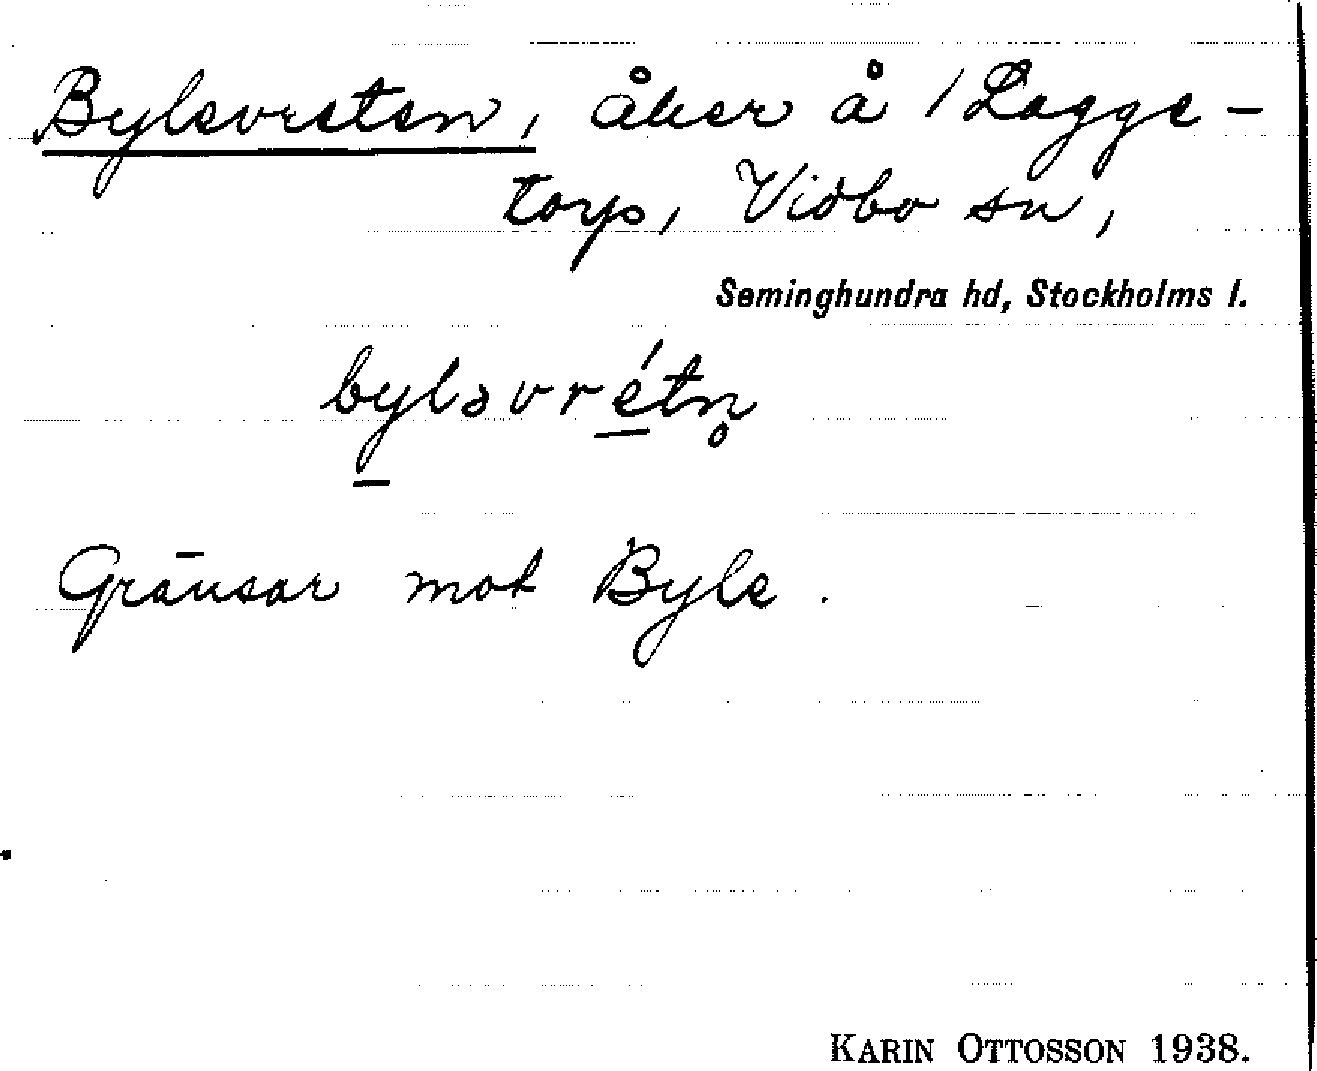 Bylevreten, åker å 1 Lagge-
torp, Vidbo sn,
Seminghundra hd, Stockholms l.
bylsvrétn̥
Gränsar mot Byle.
KARIN OTTOSSON 1938.